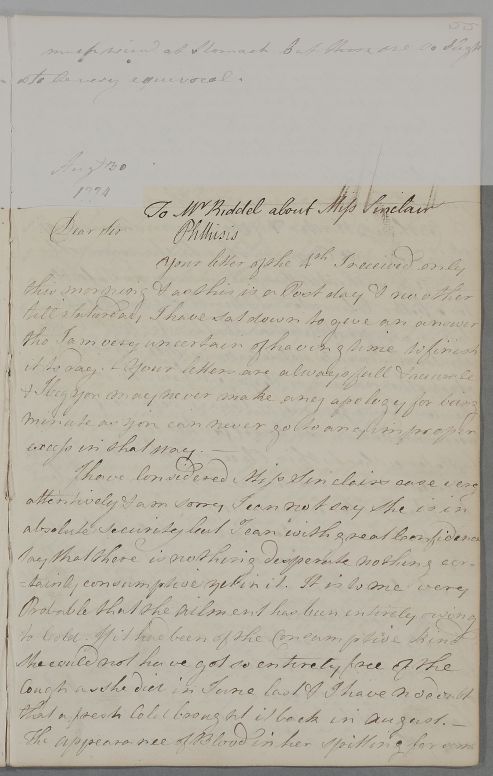 55
at Stomach but these are so slight
as to be very equivocal.
Augt 30
1774
To Mr Riddel about Miss Sinclair
Phthisis
Dear Sir
Your letter of the 4th I received only
this morning & as this is a Post day & no other
till Saturday I have sat down to give an answer
tho I am very uncertain of having time to finish
it to day. Your letters are always full & accurate
& I beg you may never make any apology for being
minute as you can never go to any improper
excess in that way.
I have Considered Miss Sinclairs case very
attentively & am sorry I can not say she is in
absolute security but I can with great Confidence
say that there is nothing desperate nothing cer-
=tainly consumptive yet in it. It is to me very
Probable that the ailment has been entirely owing
to Cold. If it had been of the Consumptive kind
she could not have got so entirely free of the
Cough as she did in June last & I have no doubt
that a fresh Cold brought it back in August.
The appearance of Blood in her spitting for some